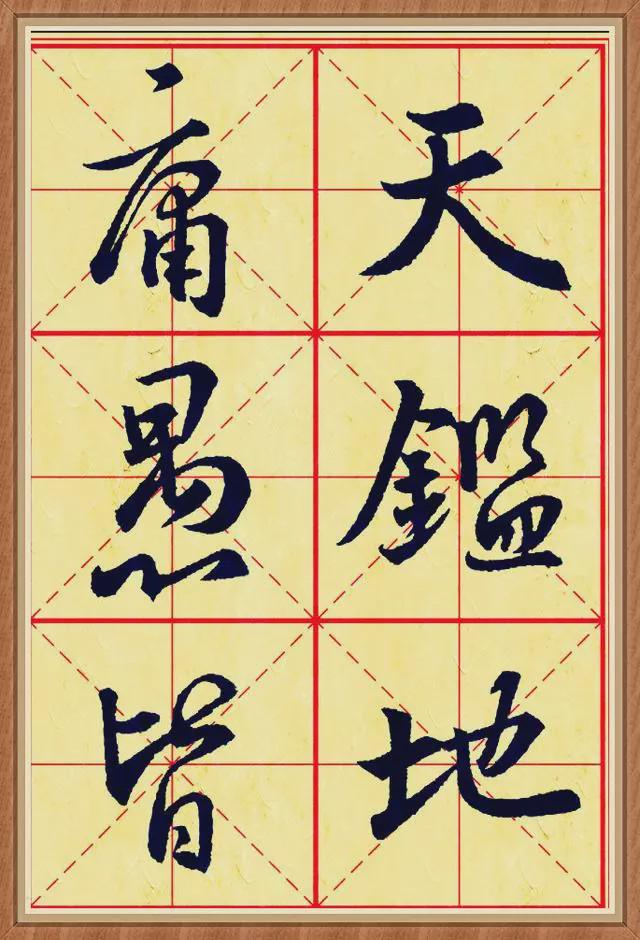 天鑑地
庸愚皆